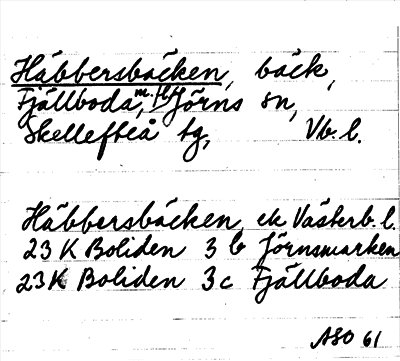 Häbbersbäcken, bäck,
Fjällboda, m. fl., Jörns sn,
Skellefteå tg, Vb. l.
Häbbersbäcken ek Västerb. l.
23 K Boliden 3 b Jörnsmarken
23K Boliden 3c Fjällboda
ASO 61